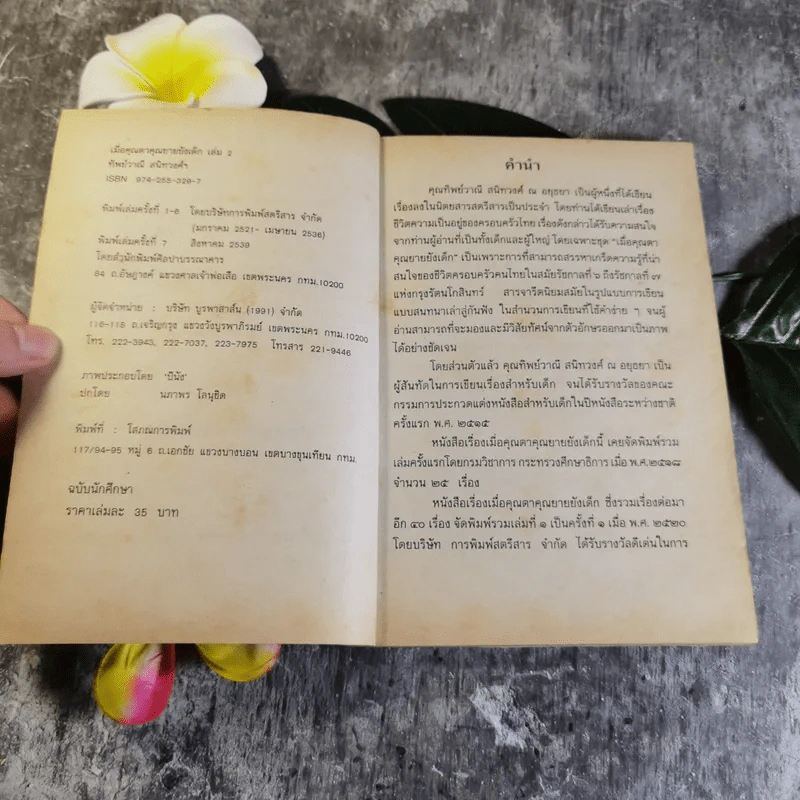 เมื่อคุณตาคุณยายยังเด็ก เล่ม 2
ทิพย์วาณี สนิทวงศ์ฯ
ISBN 974-255-329-7
พิมพ์เล่มครั้งที่ 1-6 โดยบริษัทการพิมพ์สตรีสาร จำกัด
(มกราคม 2521- เมษายน 2536)
พิมพ์เล่มครั้งที่ 7 สิงหาคม 2539
โดยสำนักพิมพ์ศิลปาบรรณาคาร
84 ถ.อัษฎางค์ แขวงศาลเจ้าพ่อเสือ เขตพระนคร กทม.10200
ผู้จัดจำหน่าย : บริษัท บูรพาสาส์น (1991) จำกัด
116-118 ถ.เจริญกรุง แขวงวังบูรพาภิรมย์ เขตพระนคร กทม.10200
โทร. 222-3943, 222-7037, 223-7975 โทรสาร 221-9446
ภาพประกอบโดย 'ปีนัง'
ปกโดย นภาพร โลนุชิต
พิมพ์ที่ : โสภณการพิมพ์
117/94-95 หมู่ 6 ถ.เอกชัย แขวงบางบอน เขตบางขุนเทียน กทม.
ฉบับนักศึกษา
ราคาเล่มละ 35 บาท
คำนำ
คุณทิพย์วาณี สนิทวงศ์ ณ อยุธยา เป็นผู้หนึ่งที่ได้เขียน
เรื่องลงในนิตยสารสตรีสารเป็นประจำ โดยท่านได้เขียนเล่าเรื่อง
ชีวิตความเป็นอยู่ของครอบครัวไทย เรื่องดังกล่าวได้รับความสนใจ
จากท่านผู้อ่านที่เป็นทั้งเด็กและผู้ใหญ่ โดยเฉพาะชุด "เมื่อคุณตา
คุณยายยังเด็ก" เป็นเพราะการที่สามารถสรรหาเกร็ดความรู้ที่น่า
สนใจของชีวิตครอบครัวคนไทยในสมัยรัชกาลที่ ๖ ถึงรัชกาลที่ ๗
แห่งกรุงรัตนโกสินทร์ สารจารีตนิยมสมัยในรูปแบบการเขียน
แบบสนทนาเล่าสู่กันฟัง ในสำนวนการเขียนที่ใช้คำง่าย ๆ จนผู้
อ่านสามารถที่จะมองและมีวิสัยทัศน์จากตัวอักษรออกมาเป็นภาพ
ได้อย่างชัดเจน
โดยส่วนตัวแล้ว คุณทิพย์วาณี สนิทวงศ์ ณ อยุธยา เป็น
ผู้สันทัดในการเขียนเรื่องสำหรับเด็ก จนได้รับรางวัลของคณะ
กรรมการประกวดแต่งหนังสือสำหรับเด็กในปีหนังสือระหว่างชาติ
ครั้งแรก พ.ศ. ๒๕๑๕
หนังสือเรื่องเมื่อคุณตาคุณยายยังเด็กนี้ เคยจัดพิมพ์รวม
เล่มครั้งแรกโดยกรมวิชาการ กระทรวงศึกษาธิการ เมื่อ พ.ศ.๒๕๑๘
จำนวน ๒๕ เรื่อง
หนังสือเรื่องเมื่อคุณตาคุณยายยังเด็ก ซึ่งรวมเรื่องต่อมา
อีก ๔๐ เรื่อง จัดพิมพ์รวมเล่มที่ ๑ เป็นครั้งที่ ๑ เมื่อ พ.ศ. ๒๕๒๐
โดยบริษัท การพิมพ์สตรีสาร จำกัด ได้รับรางวัลดีเด่นในการ